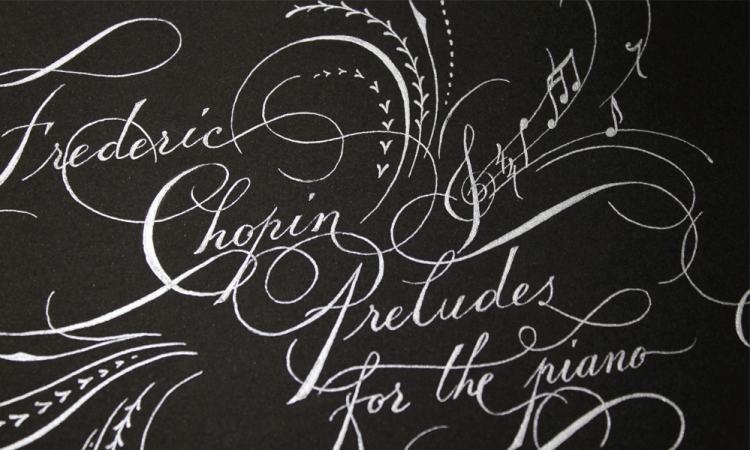 Frederic
Chopin
Preludes
for the piano